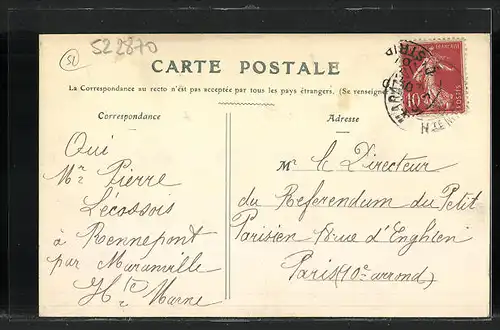 522870
51
CARTE POSTALE
La Correspondance au recto n'est pas acceptée par tous les pays étrangers. (Se renseigner
Correspondance
Adresse
Oui
Mr Pierre
Lécossois
à Rennepont
par Maranville
Hte Marne
Mr le Directeur
du Referendum du Petit
Parisien rue d'Enghien
Paris (10e arrond)
10
POSTES